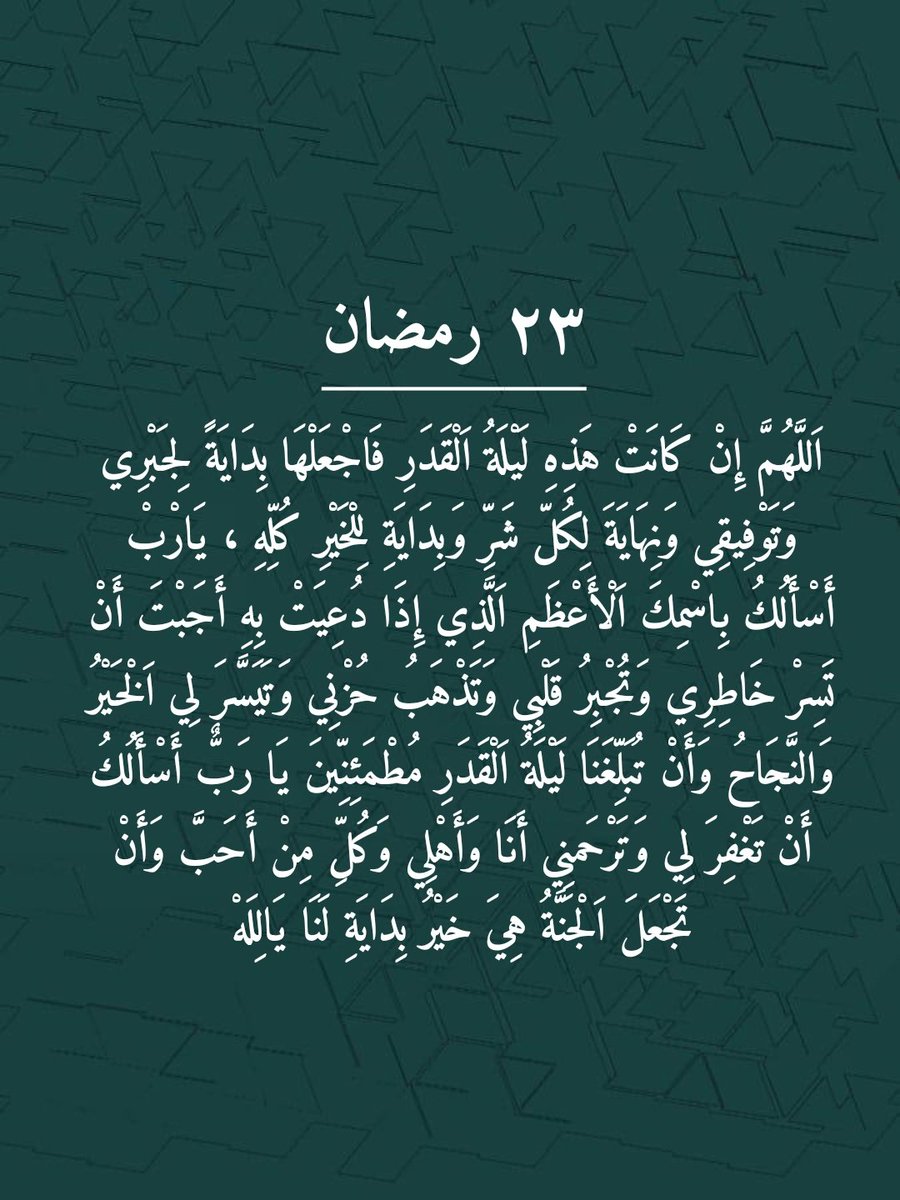 ٢٣ رمضان
اَللَّهُمَّ إِنْ كَانَتْ هَذِهِ لَيْلَةُ اَلْقَدَرِ فَاجْعَلْهَا بِدَايَةً لِجَبْرِي
وَتَوْفِيقِي وَنِهَايَةَ لِكُلِّ شَرِّ وَبِدَايَةِ لِلْخَيْرِ كُلِّهِ ، يَارْبْ
أَسْأَلُكُ بِاسْمِكَ اَلْأَعْظَمِ اَلَّذِي إِذَا دُعِيَتْ بِهِ أَجَبْتَ أَنْ
تَسِرْ خَاطِرِي وَتُجْبِرُ قَلْبِي وَتَذْهَبُ حُزْنِي وَتَيَسَّرَ لِي اَلْخَيْرُ
وَالنَّجَاحُ وَأَنْ تُبَلِّغَنَا لَيْلَةُ اَلْقَدَرِ مُطْمَئِنِّينَ يَا رَبٌّ أَسْأَلُكُ
أَنْ تَغْفِرَ لِي وَتَرْحَمنِي أَنَا وَأَهْلِي وَكُلِّ مِنْ أَحَبَّ وَأَنْ
تَجْعَلَ اَلْجَنَّةُ هِيَ خَيْرُ بِدَايَةِ لَنَا يَالِلَهْ